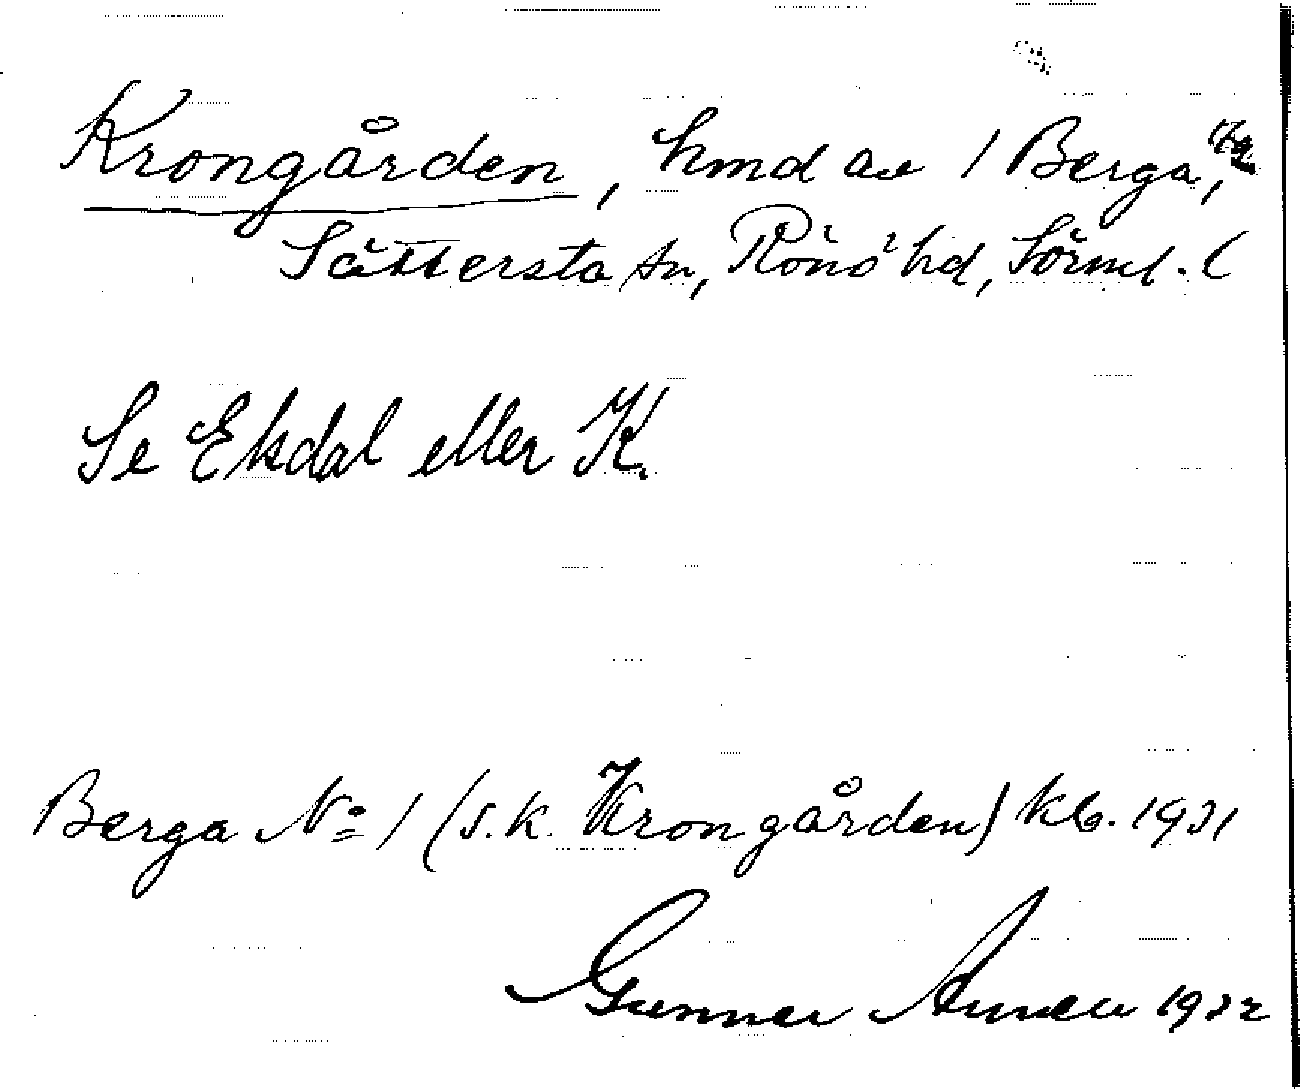 Krongården, hmd av 1 Berga,
Sättersta sn, Rönö hd, Sörml. (
Se Ekdal eller K.
Berga No 1 (s.k. Krongården) kb. 1931
Gunnar 1932